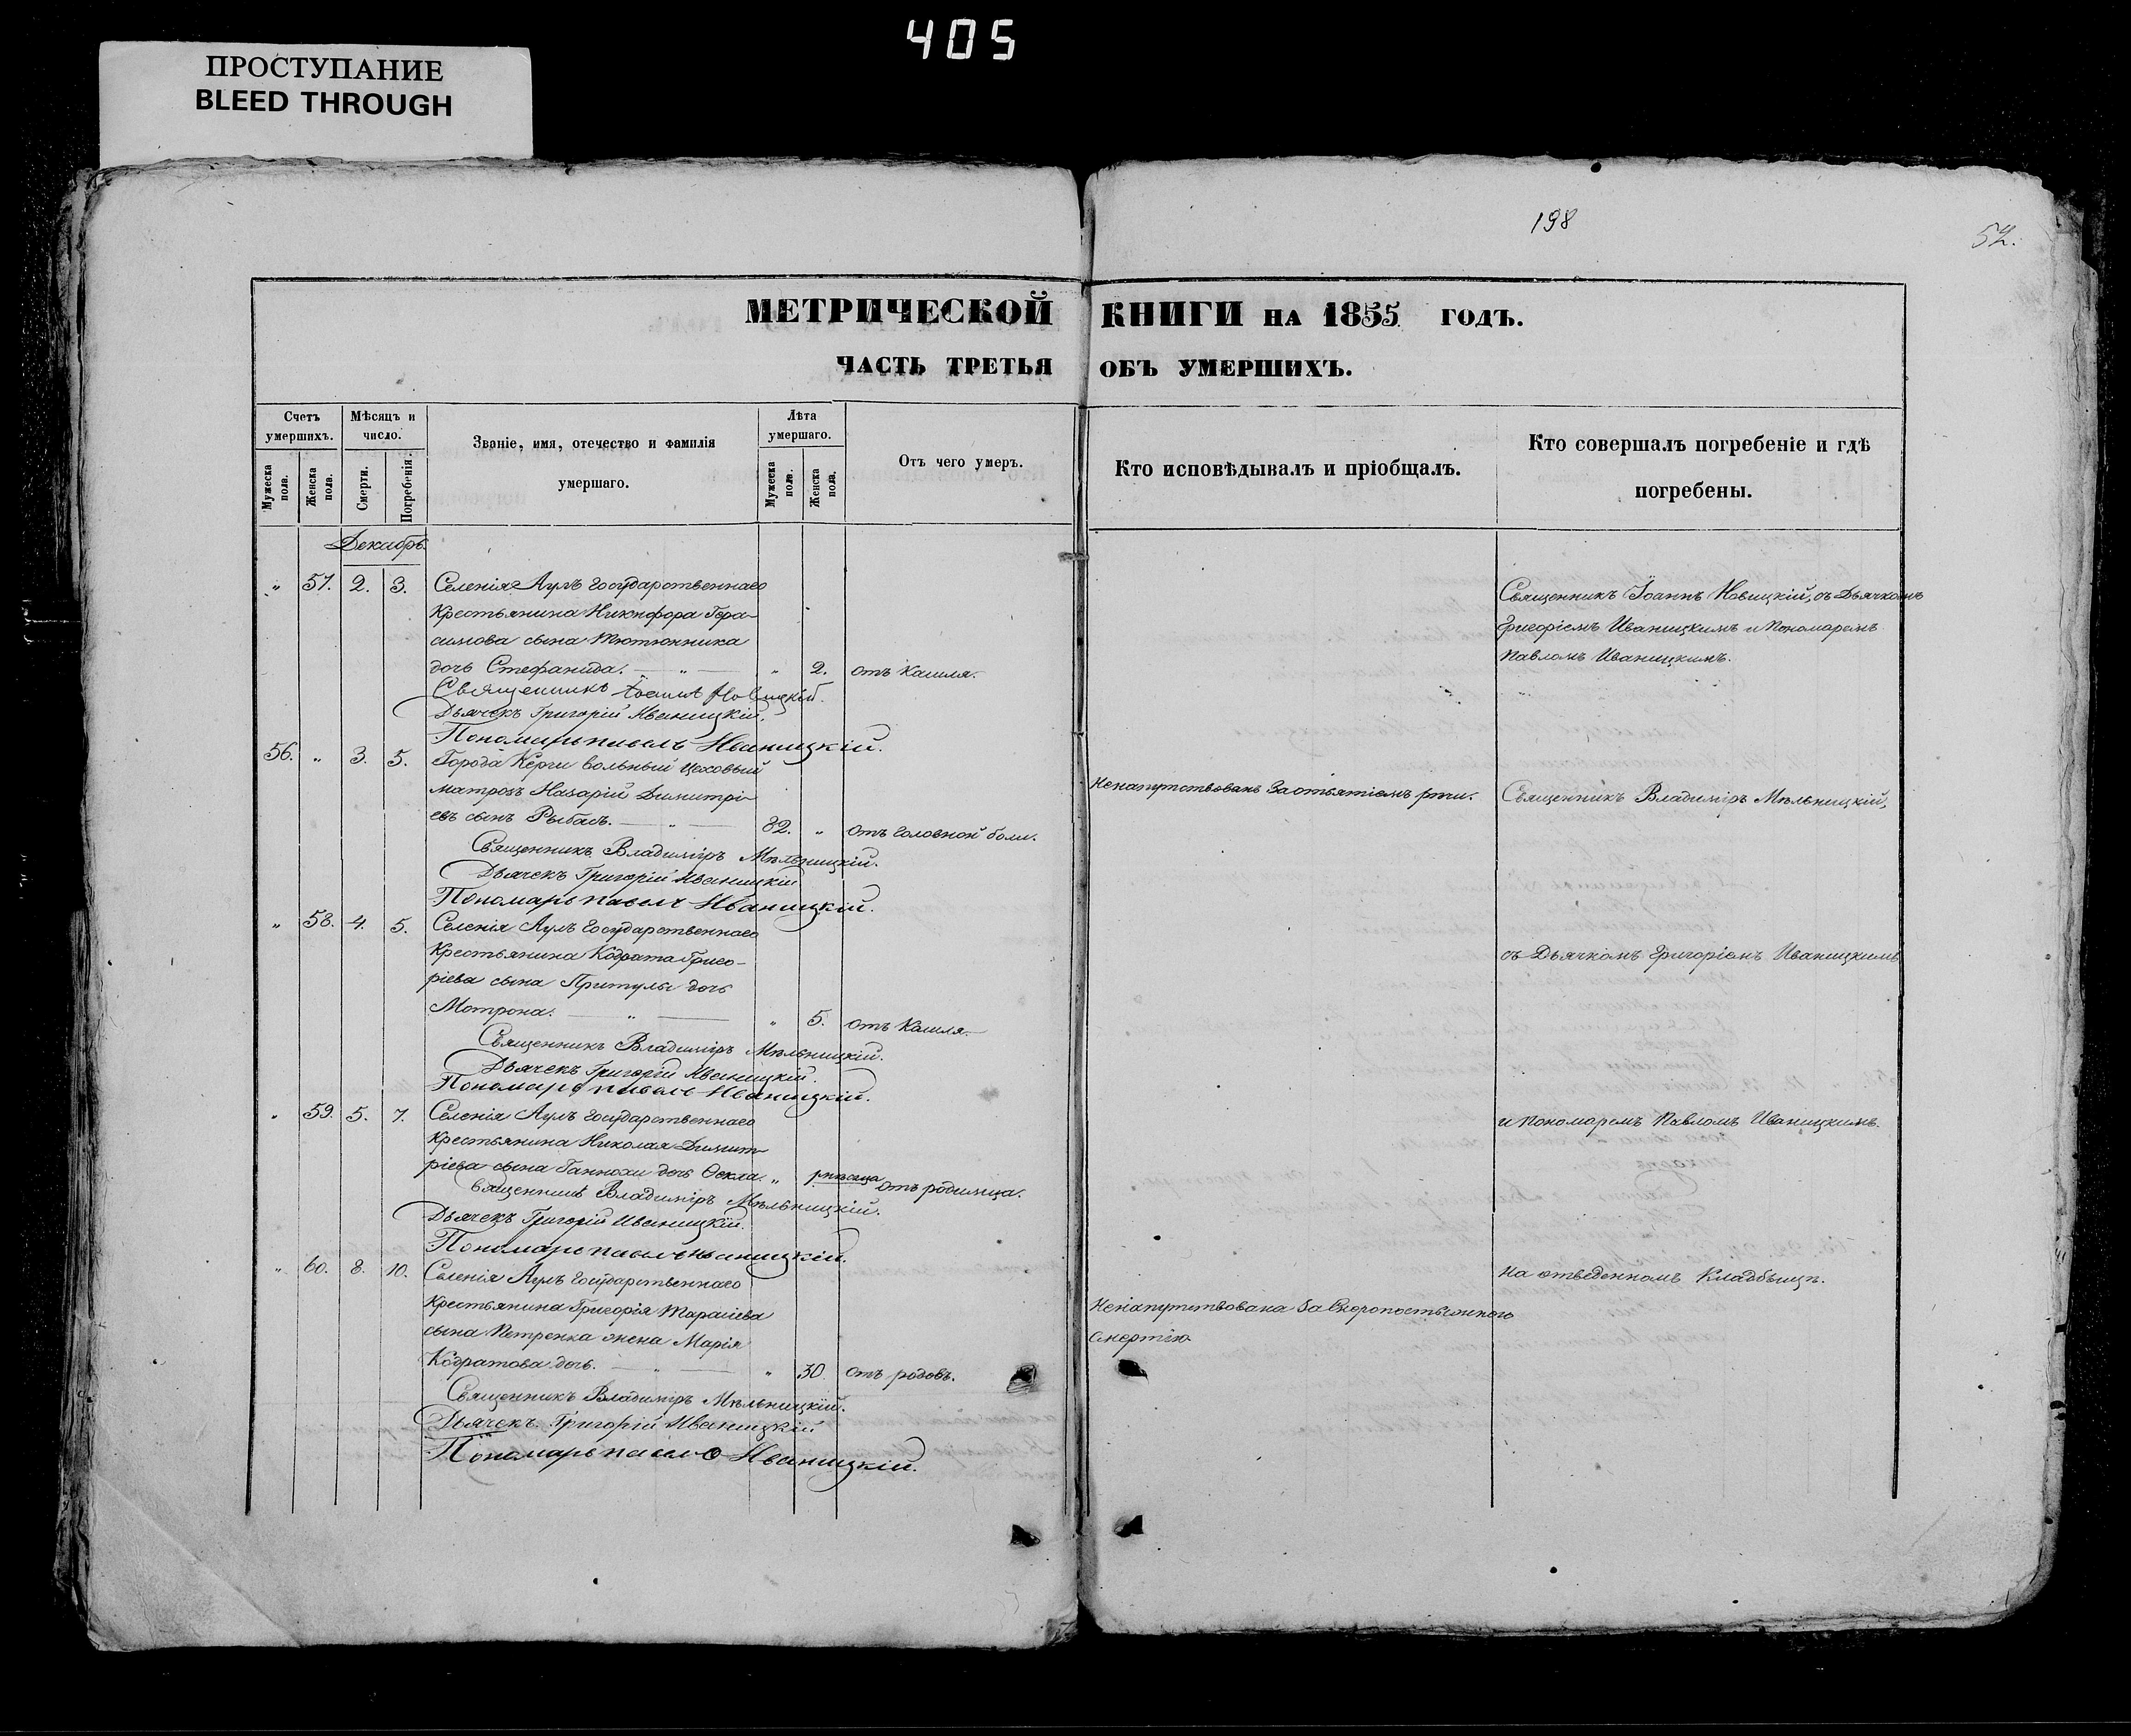 405
ПРОСТУПАНИЕ
BLEED THROUGH
198
52.
МЕТРИЧЕСКОЙ КНИГИ НА 1855 ГОДЪ.
ЧАСТЬ ТРЕТЬЯ ОБЪ УМЕРШИХЪ.
Счетъ умершихъ.
Мужеска пола.
Женска пола.
Мѣсяцъ и число.
Смерти.
Погребенія.
Званіе, имя, отечество и фамилія умершаго.
Лѣта умершаго.
Мужеска пола.
Женска пола.
Отъ чего умеръ.
Кто исповѣдывалъ и пріобщалъ.
Кто совершалъ погребеніе и гдѣ погребены.
Декабрь
" 57. 2. 3. Селенія Аулъ государственнаго
Крестьянина Никифора Гера-
симова сына Тютюнника
дочь Стефанида. " " 2. отъ Кашля.
Священникъ Іоаннъ Новицкій.
Дьячекъ Григорій Иваницкій.
Пономарь Павелъ Иваницкій.
56. " 3. 5. Города Керчи вольный цеховый
матросъ Назарій Димитрі-
евъ сынъ Рыбасъ. " 82. " отъ головной боли.
Священникъ Владиміръ Мѣльницкій.
Дьячекъ Григорій Иваницкій
Пономарь Павелъ Иваницкій.
" 58. 4. 5. Селенія Аулъ государственнаго
Крестьянина Кодрата Григо-
ріева сына Притулы дочь
Мотрона. " " 5. отъ Кашля.
Священникъ Владиміръ Мѣльницкій.
Дьячекъ Григорій Иваницкій.
Пономарь Павелъ Иваницкій.
" 59. 5. 7. Селенія Аулъ государственнаго
Крестьянина Николая Димит-
ріева сына дочь Ѳекла. " отъ родимца.
Священникъ Владиміръ Мѣльницкій.
Дьячекъ Григорій Иваницкій.
Пономарь Павелъ Иваницкій.
" 60. 8. 10. Селенія Аулъ государственнаго
Крестьянина Григорія Тарасіева
сына Петренка жена Марія
Кодратова дочь. " " 30. отъ родовъ.
Священникъ Владиміръ Мѣльницкій.
Дьячекъ Григорій Иваницкій
Пономарь Павелъ Иваницкій.
Ненапутствованъ За отъятіемъ рѣчи.
Ненапутствована За Скоропостыжною
Смертію
Священникъ Іоаннъ Новицкій, съ Дьячкомъ
Григоріемъ Иваницкимъ и Пономаремъ
Павломъ Иваницкимъ.
Священникъ Владиміръ Мѣльницкій,
съ Дьячкомъ Григоріемъ Иваницкимъ
и Пономаремъ Павломъ Иваницкимъ.
На отведенномъ Кладбыщѣ.